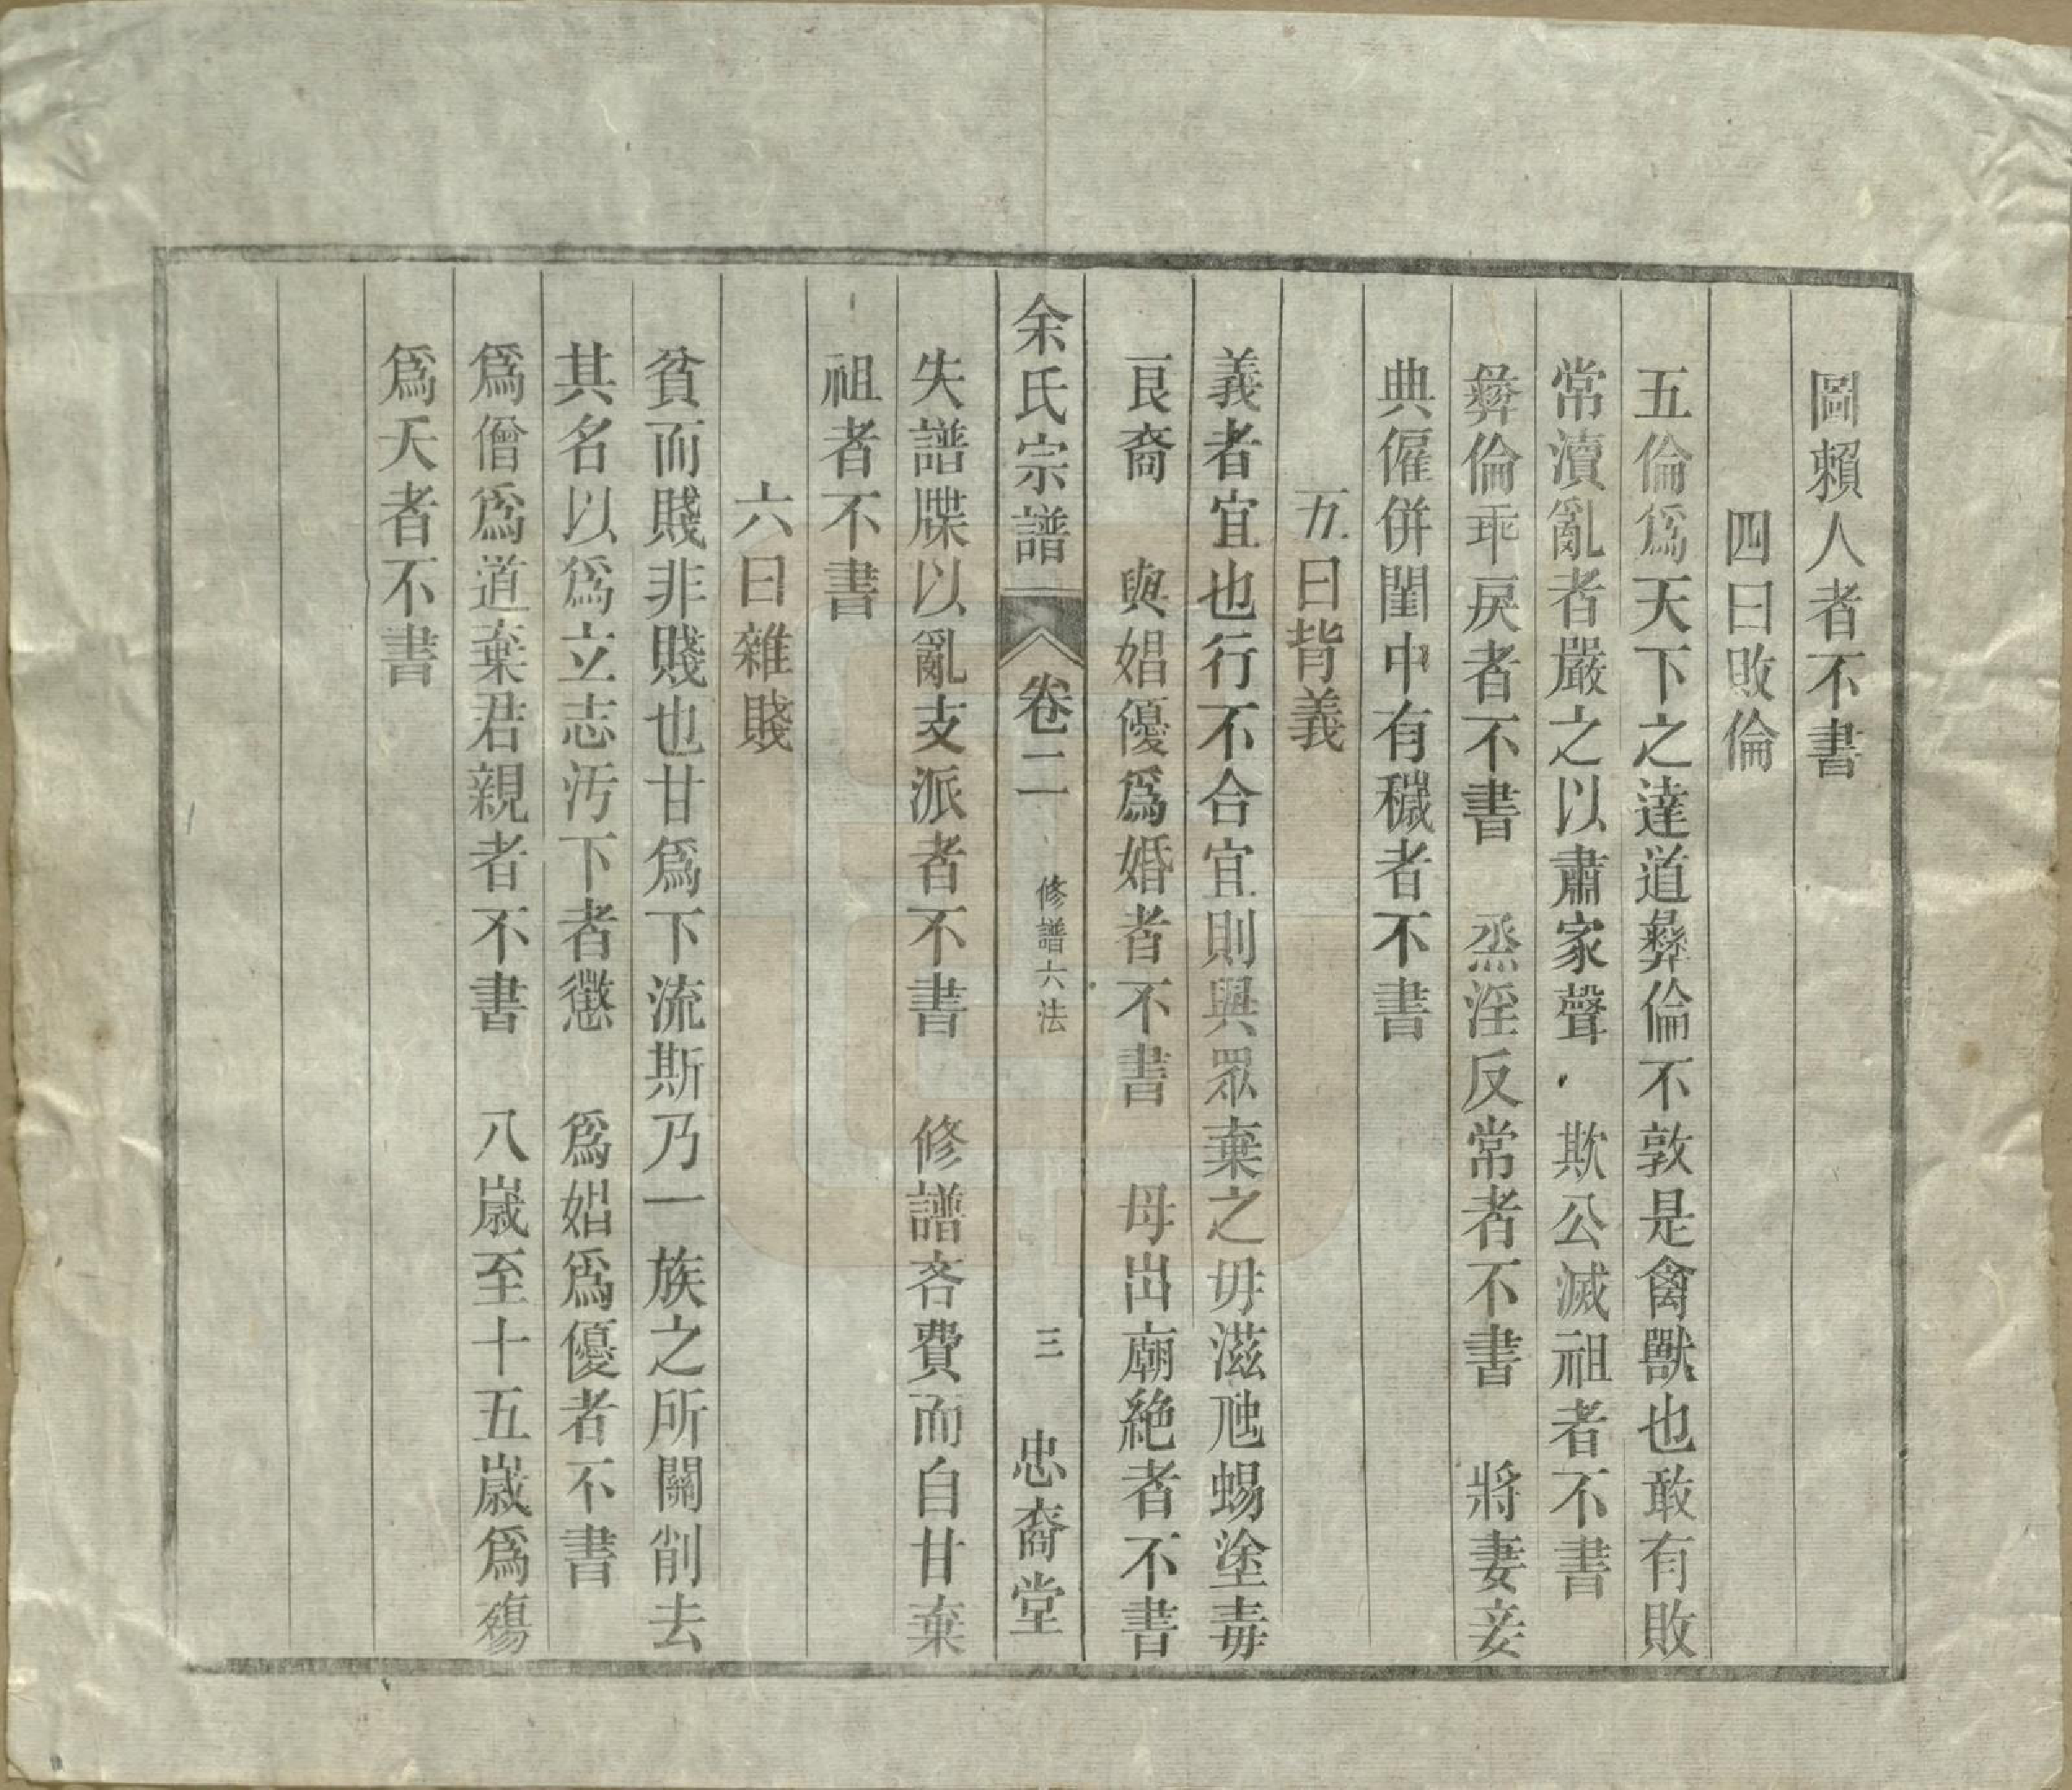 圖賴人者不書
四曰敗倫
五倫爲天下之達道彝倫不敦是禽獸也敢有敗
常瀆亂者嚴之以肅家聲 欺公滅祖者不書
彝倫乖戾者不書 烝淫反常者不書 將妻妾
典僱併閨中有穢者不書
五曰背義
義者宜也行不合宜則與眾棄之毋滋虺蜴塗毒
良裔 與娼優爲婚者不書 母出廟絶者不書
余氏宗譜 卷二 修譜六法 三 忠裔堂
失譜牒以亂支派者不書 修譜吝費而自甘棄
祖者不書
六曰雜賤
貧而賤非賤也甘爲下流斯乃一族之所關削去
其名以爲立志汚下者懲 爲娼爲優者不書
爲僧爲道棄君親者不書 八歲至十五歲爲殤
爲夭者不書